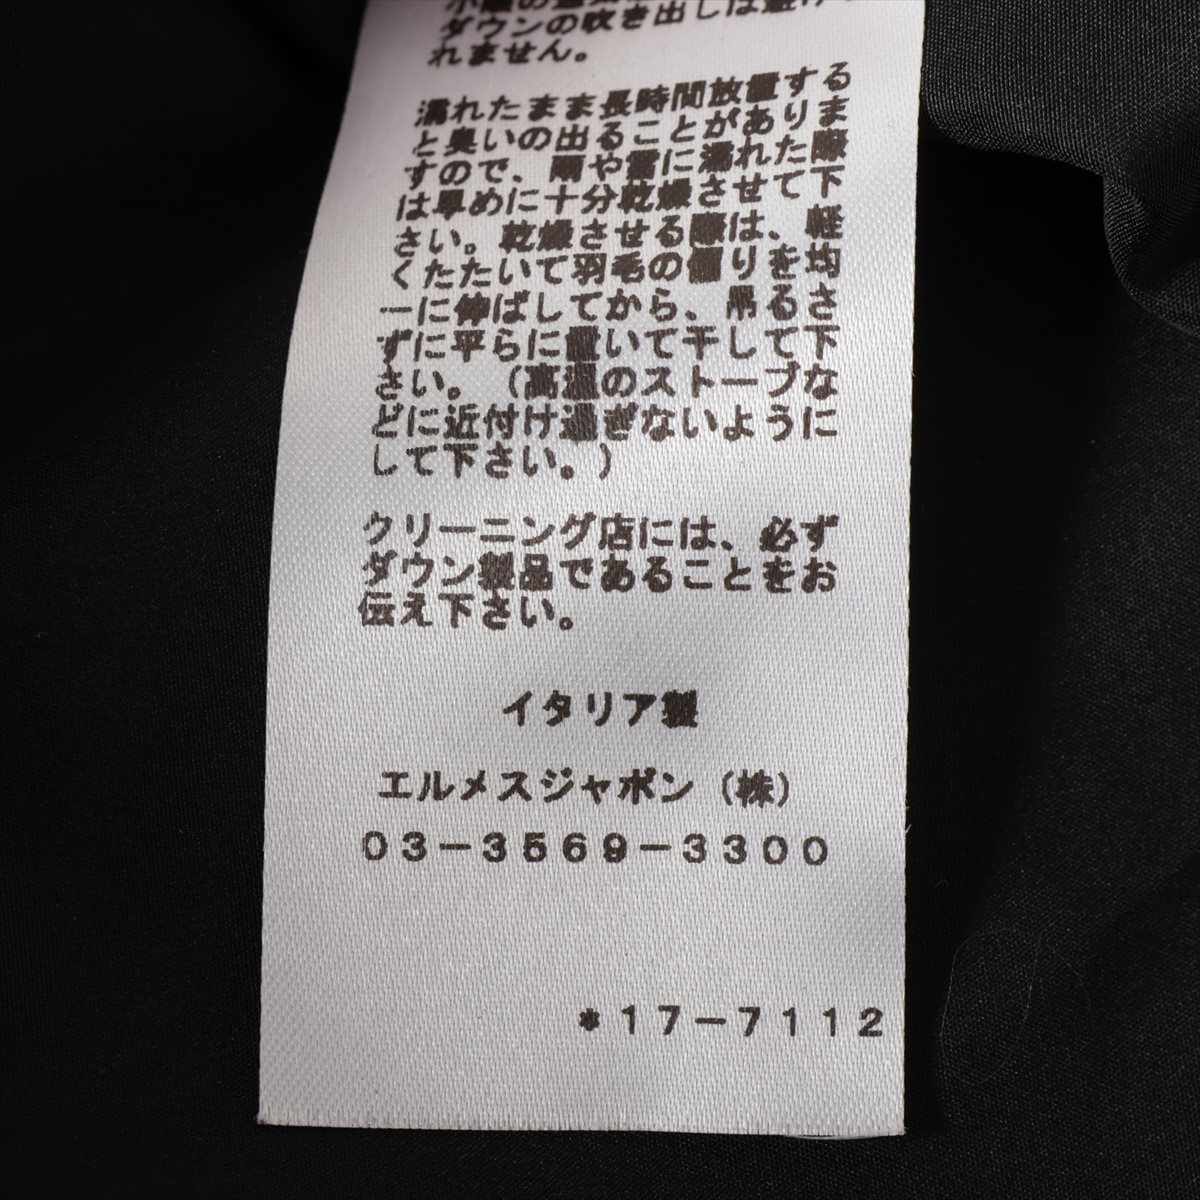 ダウンの吹き出しは避けら
れません。
濡れたまま長時間放置する
と臭いの出ることがありま
すので、雨や雪に濡れた際
は早めに十分乾燥させて下
さい。乾燥させる際は、軽
くたたいて羽毛の偏りを均
一に伸ばしてから、吊るさ
ずに平らに置いて干して下
さい。(高温のストーブな
どに近付け過ぎないように
して下さい。)
クリーニング店には、必ず
ダウン製品であることをお
伝え下さい。
イタリア製
エルメスジャポン(株)
03-3569-3300
*17-7112